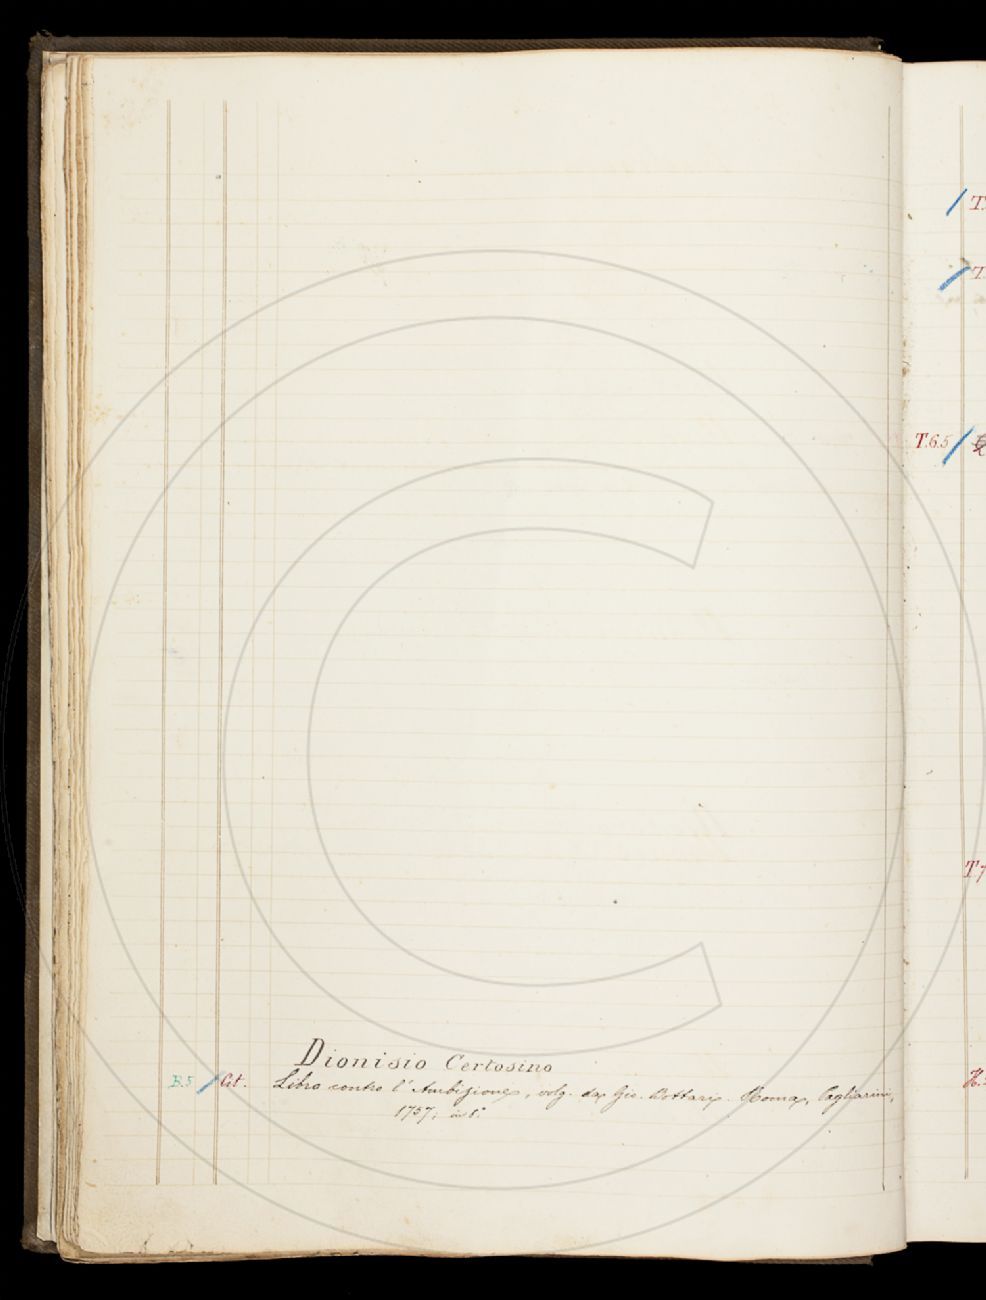 T.
T.
T.6.5
T 7
Dionisio Certosino
B.5 Cit. Libro contro l'Ambizione, volg. da Gio. Bottari. Roma, Pagliarini,
1757, in 8.°